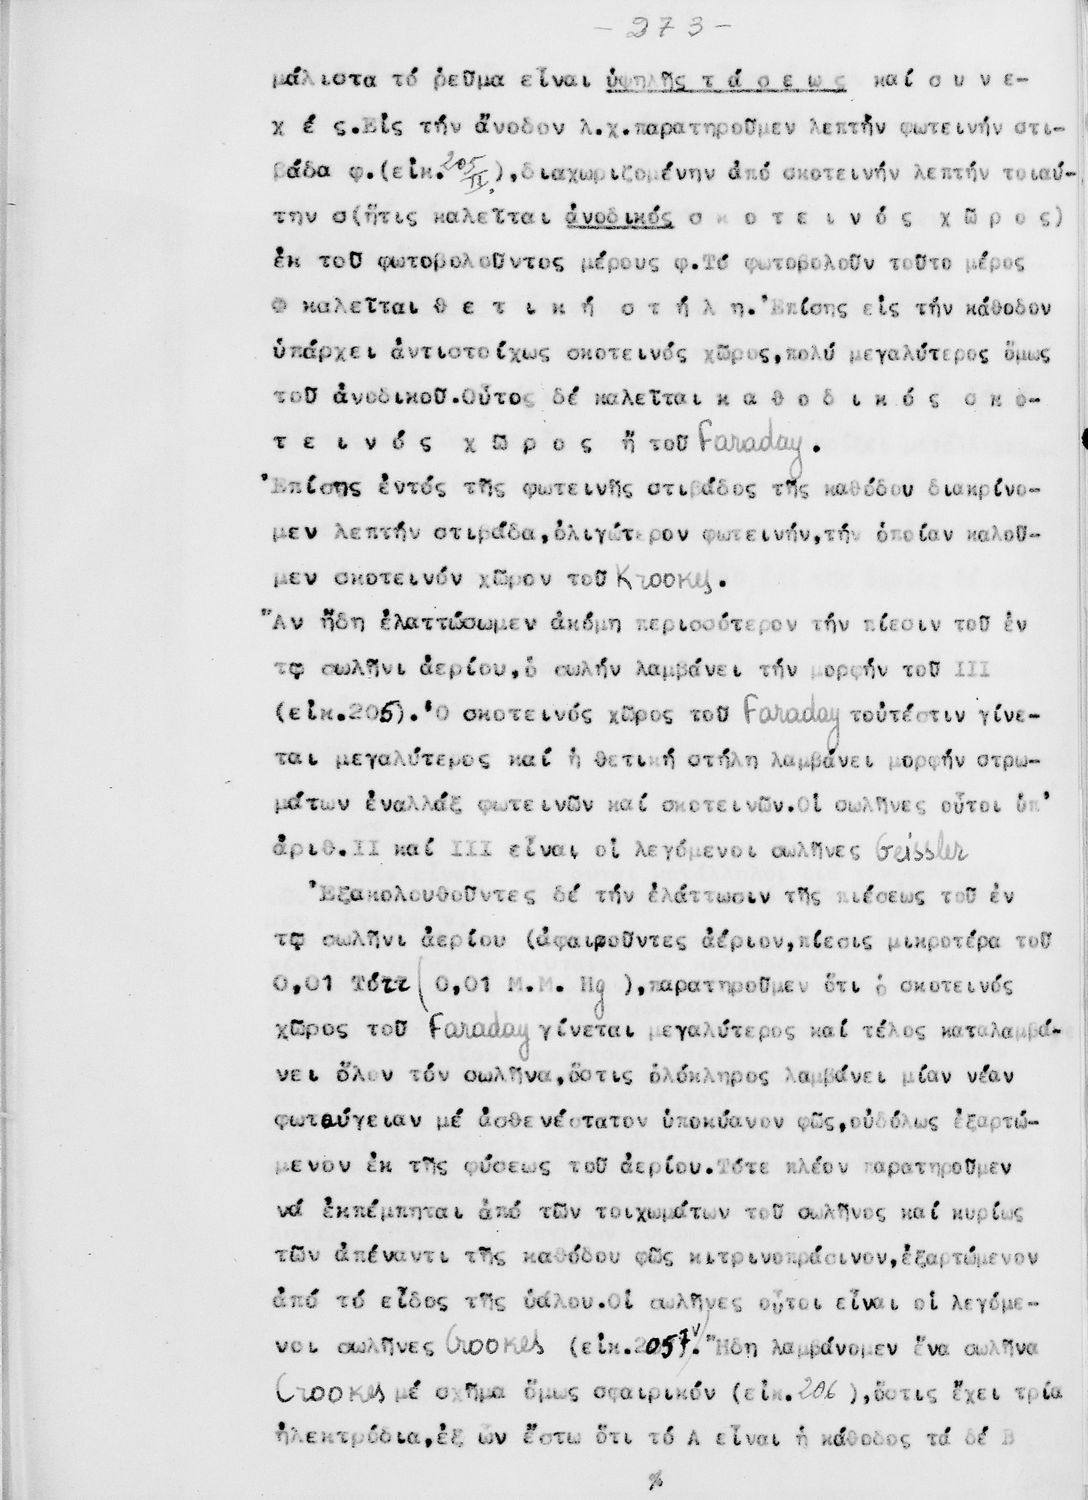 - 273 -
μάλιστα τό ῥεῦμα εἶναι ὑψηλῆς τ ά σ ε ω ς καί σ υ ν ε-
χ έ ς.Εἰς τήν ἄνοδον λ.χ.παρατηροῦμεν λεπτήν φωτεινήν στι-
βάδα φ.(εἰκ.205 II,),διαχωριζομένην ἀπό σκοτεινήν λεπτήν τοιαύ-
την σ(ἥτις καλεῖται ἀνοδικός σ κ ο τ ε ι ν ό ς χ ῶ ρ ο ς)
ἐκ τοῦ φωτοβολοῦντος μέρους φ.Τό φωτοβολοῦν τοῦτο μέρος
Φ καλεῖται θ ε τ ι κ ή σ τ ή λ η.Ἐπίσης εἰς τήν κάθοδον
ὑπάρχει ἀντιστοίχως σκοτεινός χῶρος,πολύ μεγαλύτερος ὅμως
τοῦ ἀνοδικοῦ.Οὗτος δέ καλεῖται κ α θ ο δ ι κ ό ς σ κ ο-
τ ε ι ν ό ς χ ῶ ρ ο ς ἤ τοῦ Faraday.
Ἐπίσης ἐντός τῆς φωτεινῆς στιβάδος τῆς καθόδου διακρίνο-
μεν λεπτήν στιβάδα,ὀλιγώτερον φωτεινήν,τήν ὁποίαν καλοῦ-
μεν σκοτεινόν χῶρον τοῦ Krookes.
Ἄν ἤδη ἐλαττώσωμεν ἀκόμη περισσότερον τήν πίεσιν τοῦ ἐν
τφ σωλῆνι ἀερίου,ὁ σωλήν λαμβάνει τήν μορφήν τοῦ III
(εἰκ.205).Ὁ σκοτεινός χῶρος τοῦ Faraday τοὐτέστιν γίνε-
ται μεγαλύτερος καί ἡ θετική στήλη λαμβάνει μορφήν στρω-
μάτων ἐναλλάξ φωτεινῶν καί σκοτεινῶν.Οἱ σωλῆνες οὗτοι ὑπ'
ἀριθ.II καί III εἶναι οἱ λεγόμενοι σωλῆνες Geissler
Ἐξακολουθοῦντες δέ τήν ἐλάττωσιν τῆς πιέσεως τοῦ ἐν
τφ σωλῆνι ἀερίου (ἀφαιροῦντες ἀέριον,πίεσις μικροτέρα τοῦ
0,01 Τόττ (0,01 M.M. Hg ),παρατηροῦμεν ὅτι ὁ σκοτεινός
χῶρος τοῦ Faraday γίνεται μεγαλύτερος καί τέλος καταλαμβά-
νει ὅλον τόν σωλῆνα,ὅστις ὁλόκληρος λαμβάνει μίαν νέαν
φωταύγειαν μέ ἀσθενέστατον ὑποκύανον φῶς,οὐδόλως ἐξαρτώ-
μενον ἐκ τῆς φύσεως τοῦ ἀερίου.Τότε πλέον παρατηροῦμεν
νά ἐκπέμπηται ἀπό τῶν τοιχωμάτων τοῦ σωλῆνος καί κυρίως
τῶν ἀπέναντι τῆς καθόδου φῶς κιτρινοπράσινον,ἐξαρτώμενον
ἀπό τό εἶδος τῆς ὑάλου.Οἱ σωλῆνες οὗτοι εἶναι οἱ λεγόμε-
νοι σωλῆνες Crookes (εἰκ.205).Ἤδη λαμβάνομεν ἕνα σωλῆνα
Crookes μέ σχῆμα ὅμως σφαιρικόν (εἰκ.206 ),ὅστις ἔχει τρία
ἠλεκτρόδια,ἐξ ὧν ἔστω ὅτι τό A εἶναι ἡ κάθοδος τά δέ B